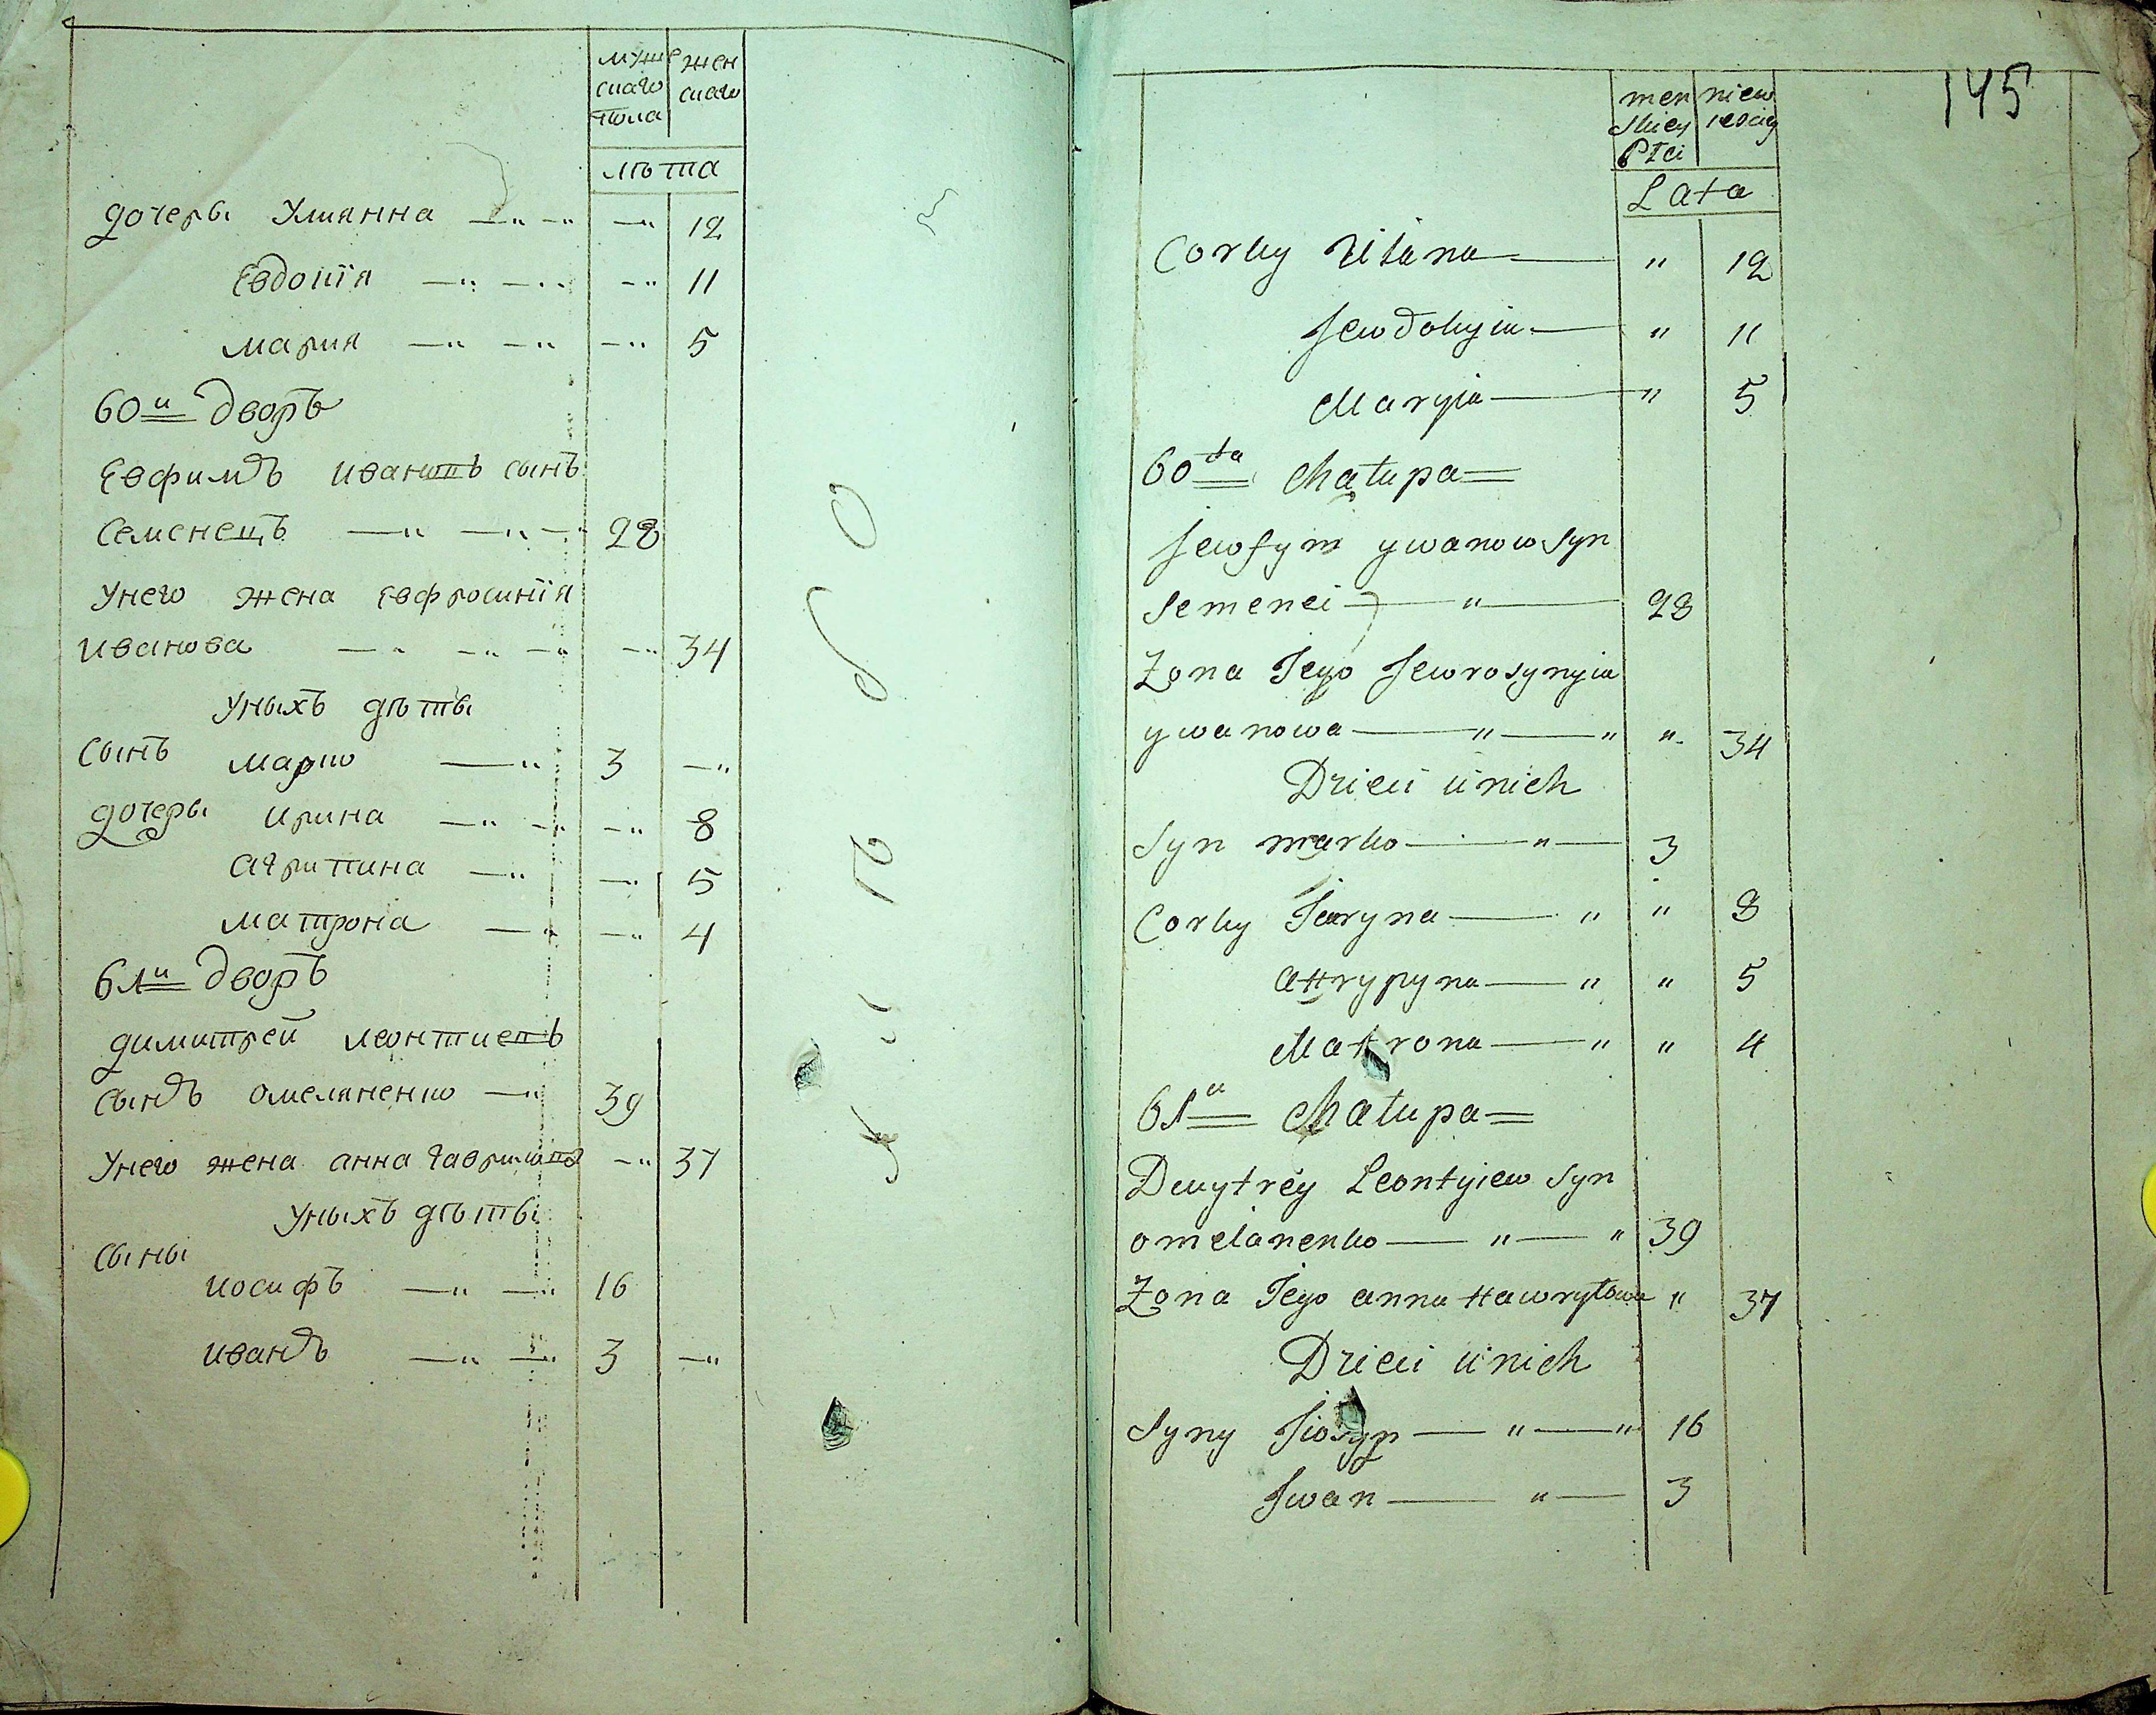 муже
скаго
пола
жен
скаго
лѣта
дочеры Улиянна — " — " — " 12
Евдокїя — " — " — " 11
мария — " — " — " 5
60й дворъ
Евфимъ ивановъ сынъ
Семенецъ — " — " — 28
Унего жена Евфросинїя
иванова — " — " — " 34
Уныхъ дѣты
Сынъ марко — " 3 — "
дочеры ирина — " — " — " 8
агрипина — " — " 5
матрона — " — " 4
61й дворъ
димитрей леонтиевъ
сынъ омеляненко — " 39
Унего жена анна гаврилова — " 37
Уныхъ дѣты
Сыны
иосифъ — " — " 16
иванъ — " — " 3 — "
145
men
skiey
Płci
niew
iesciey
Lata
Corky Ulana — " 12
Jewdokyia — " 11
Maryia — " 5
60ta Chałupa
Jewfym ywanow Syn
Semenei — " — 28
Zona Jego Jewrosynyia
ywanowa — " — " " 34
Dzieci u nich
Syn marko — " — 3
Corky Jaryna — " " 8
aHrypyna — " " 5
Matrona — " " 4
61a Chałupa
Dmytrey Leontyiew Syn
omelanenko — " — " 39
Zona Jego anna Hawryłowa " 37
Dzieci u nich
Syny Jiosyp — " — " 16
Jwan — " — 3